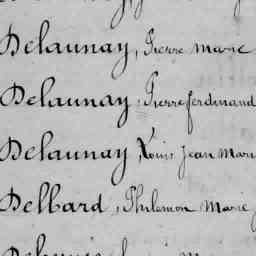 Delaunay, Pierre marie
Delaunay, Pierre ferdinand
Delaunay, Louis Jean Mari
Delbard, Philemon Marie